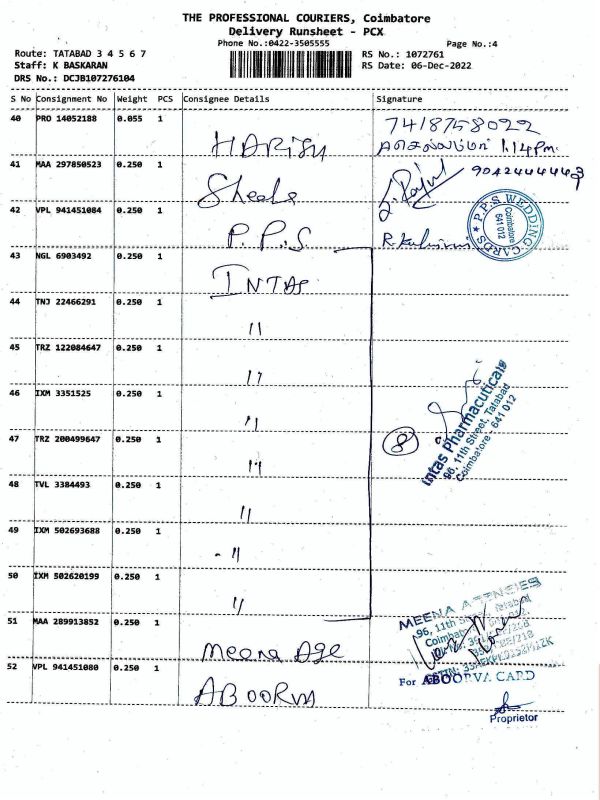 THE PROFESSIONAL COURIERS, Coimbatore
Delivery Runsheet - PCX
Phone No.:0422-3505555
Page No.:4
Route: TATABAD 3 4 5 6 7
RS No.: 1072761
Staff: K BASKARAN
RS Date: 06-Dec-2022
DRS No.: DCJB107276104
S No Consignment No Weight PCS Consignee Details Signature
40 PRO 14052188 0.055 1 HARISH 7418758022
1.14pm.
41 MAA 297850523 0.250 1 Sheela 9042444443
42 VPL 941451084 0.250 1 P.P.S.
P.P.S WEDDING CARDS
Coimbatore
641 012
43 NGL 6903492 0.250 1 INTAS
44 TNJ 22466291 0.250 1 "
45 TRZ 122084647 0.250 1 "
46 IXM 3351525 0.250 1 "
47 TRZ 200499647 0.250 1 " 8
Intas Pharmaceuticals
96, 11th Street, Tatabad
Coimbatore - 641 012
48 TVL 3384493 0.250 1 "
49 IXM 502693688 0.250 1 "
50 IXM 502620199 0.250 1 "
51 MAA 289913852 0.250 1 Meena Age
MEENA AGENCIES
96, 11th Street, Tatabad
52 VPL 941451080 0.250 1 ABOORVA
For ABOORVA CARD
Proprietor